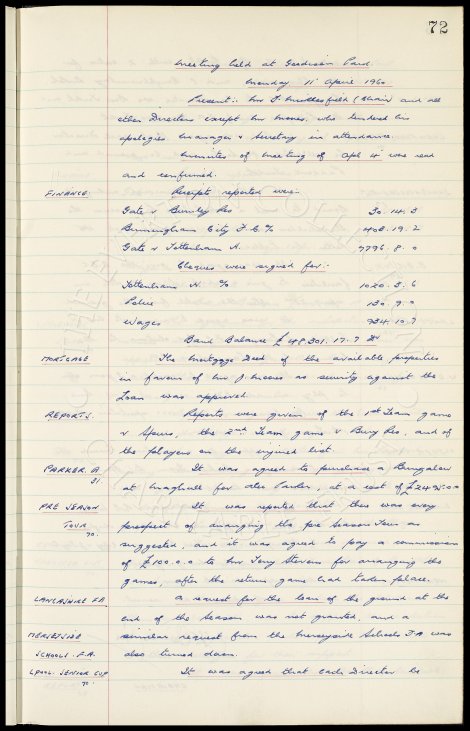 72
Meeting held at Goodison Park
Monday 11 April 1960
Present :- Mr F. Micklesfield (Chair) and all
other Directors except Mr Moores, who tendered his
apologies. Manager & Secretary in attendance.
Minutes of Meeting of Apl 4 were read
and confirmed.
FINANCE. Receipts reported were
Gate v Burnley Res 30.14.3
Birmingham City F.C. % 408.19.2
Gate v Tottenham H. 7796.8.0
Cheques were signed for :-
Tottenham H. % 1020.3.6
Police 130.9.0
Wages 934.10.7
Bank Balance £48,301.17.7 Dr
MORTGAGE The Mortgage Deed of the available properties
in favour of Mr J. Moores as security against the
Loan was approved.
REPORTS. Reports were given of the 1st Team game
v Spurs, the 2nd Team game v Bury Res, and of
the players on the injured list
PARKER. A It was agreed to purchase a Bungalow
at Maghull for Alec Parker, at a cost of £2495.0.0
PRE SEASON It was reported that there was every
TOUR prospect of arranging the pre season Tour as
70. suggested, and it was agreed to pay a commission
of £100.0.0 to Mr Tony Stevens for arranging the
games, after the return game had taken place.
LANCASHIRE F.A a request for the loan of the ground at the
end of the season was not granted, and a
MERSEYSIDE similar request from the Merseyside Schools F.A was
SCHOOLS. F.A. also turned down.
LPOOL. SENIOR CUP It was agreed that each Director be